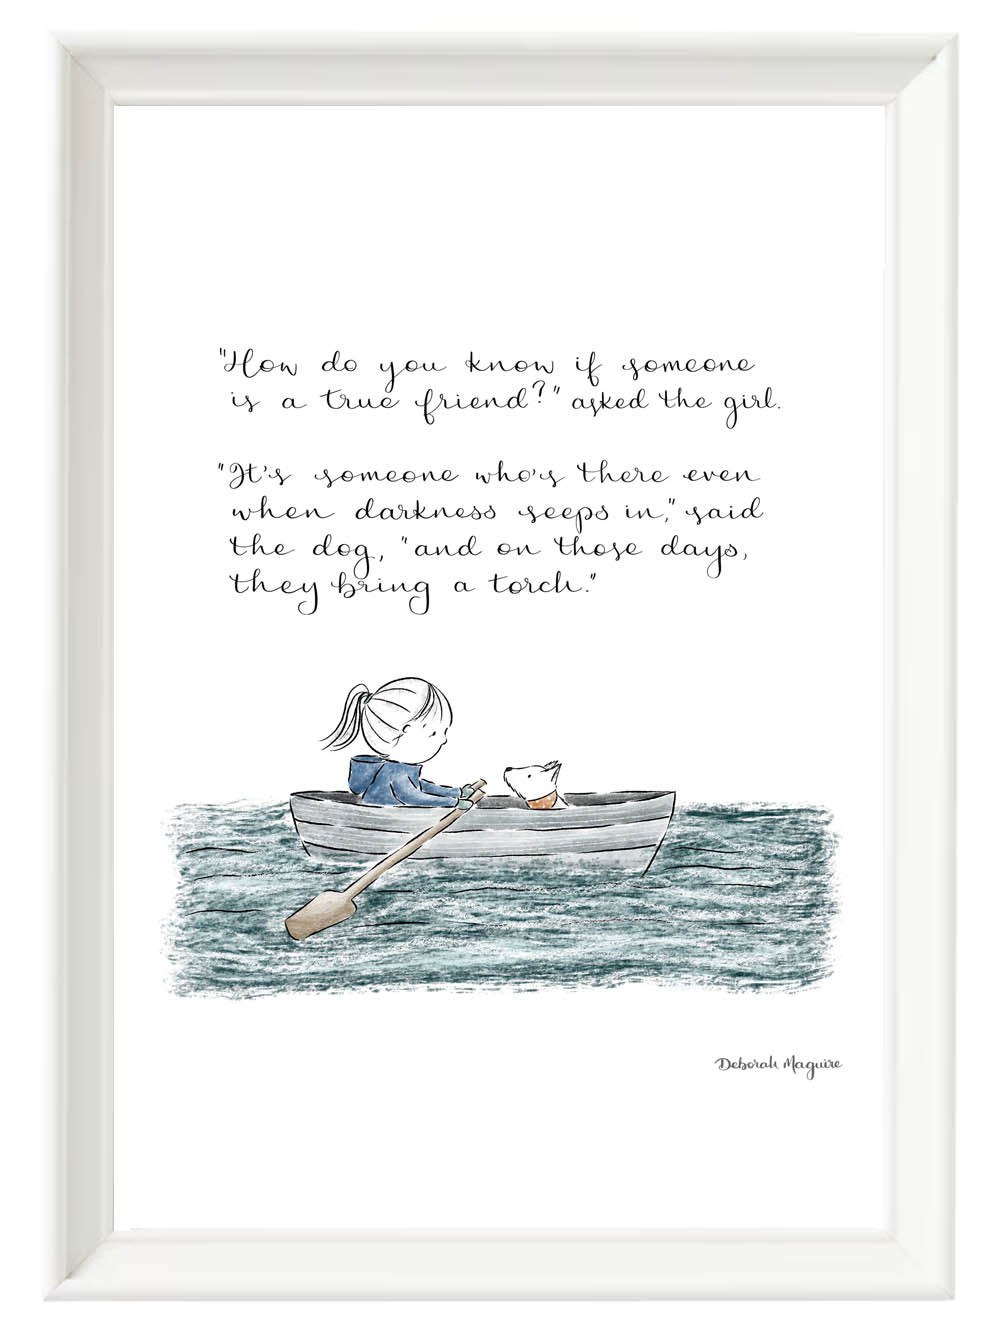 "How do you know if someone
is a true friend?" asked the girl.
"It's someone who's there even
when darkness seeps in," said
the dog, "and on those days,
they bring a torch."
Deborah Maguire